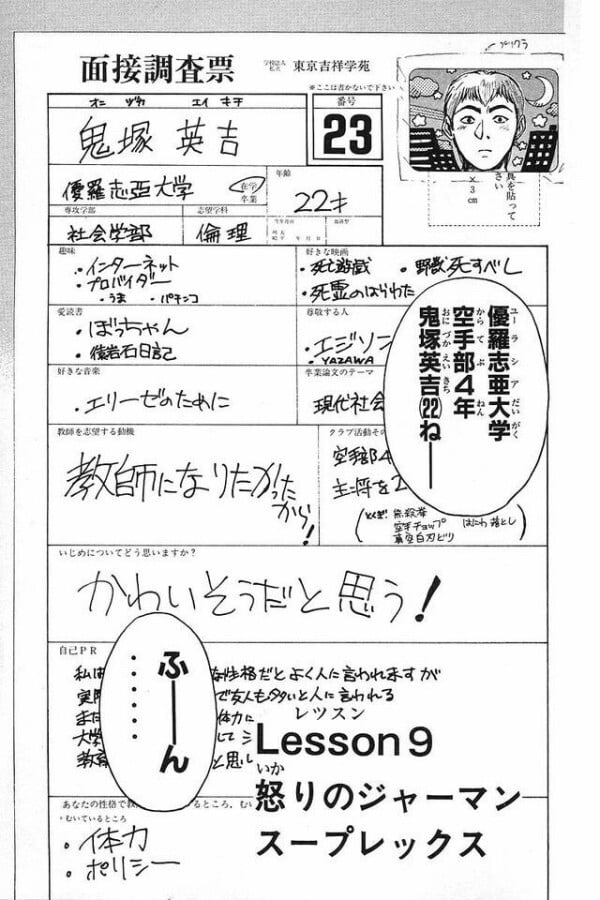 プリクラ
面接調査票
学校法人
私立
東京吉祥学苑
※ここは書かないで下さい
オニ ヅカ エイ キチ
鬼塚 英吉
番号
23
真を貼って
さい
×3cm
優羅志亜大学
在学
卒業
年齢
22才
専攻学部
社会学部
志望学科
倫理
趣味
・インターネット
・プロバイダー
・うま ・パチンコ
好きな映画
・死亡遊戯 ・野獣死すべし
・死霊のはらわた
愛読書
・ぼっちゃん
・猿岩石日記
尊敬する人
・エジソン
・YAZAWA
好きな音楽
・エリーゼのために
卒業論文のテーマ
現代社会
優羅志亜大学
ユーラシアだいがく
空手部4年
からてぶ ねん
鬼塚英吉(22)ね――
おにづかえいきち
教師を志望する動機
教師になりたかった
から!
クラブ活動その
空手部4
主将を2
とくぎ
空手チョップ
はにわ落とし
真空白刃どり
いじめについてどう思いますか?
かわいそうだと思う!
自己PR
私は
な性格だとよく人に言われますが
実際
で友人も多いと人に言われる
また
体力に
大学
して
教育
と思い
ふーーん
・・・・・・
レッスン
Lesson9
いか
怒りのジャーマン
スープレックス
あなたの性格で教
いるところ、むい
・むいているところ
・体力
・ポリシー